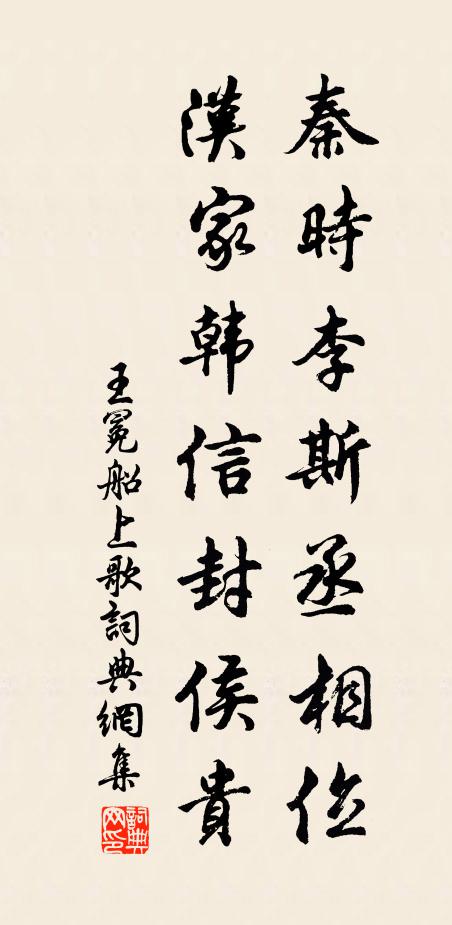 秦時李斯丞相位
漢家韩信封侯貴
王冕船上歌詞典網集
詞典网印